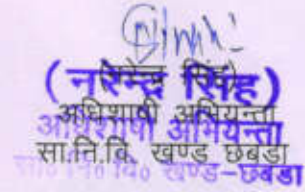 (नरेन्द्र सिंह)
अधिशाषी अभियन्ता
अधिशाषी अभियन्ता
सा.नि.वि. खण्ड छबडा
सा० नि० वि० खण्ड-छबडा